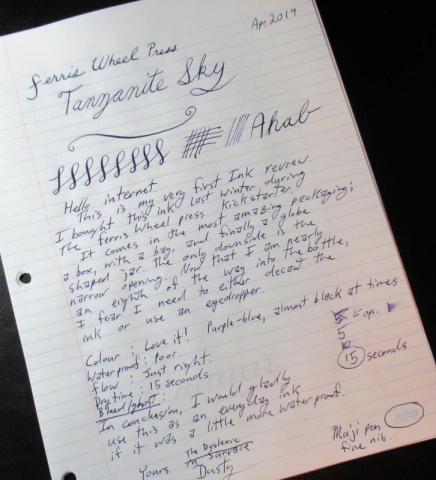 Apr 2019
Ferris Wheel Press
Tanzanite Sky
Ahab
Hello internet.
This is my very first Ink review.
I bought this ink last winter during
The ferris Wheel press Kickstarter.
It comes in the most amazing packaging;
a box, with a bag, and finally a globe
shaped jar. the only downside is the
narrow opening. Now that I am nearly
an eighth of the way into the bottle,
I fear I need to either decant the
ink or use an eyedropper.
Colour: Love it! Purple-blue, almost black at times
Waterproof: Poor.
flow: Just right.
Dry time: 15 seconds
Bleed/ghost:
5
10
15 seconds
In conclusion, I would gladly
use this as an everyday ink
if it was a little more waterproof.
Yours
The Dyslexic
Dusty
Muji pen
fine nib.